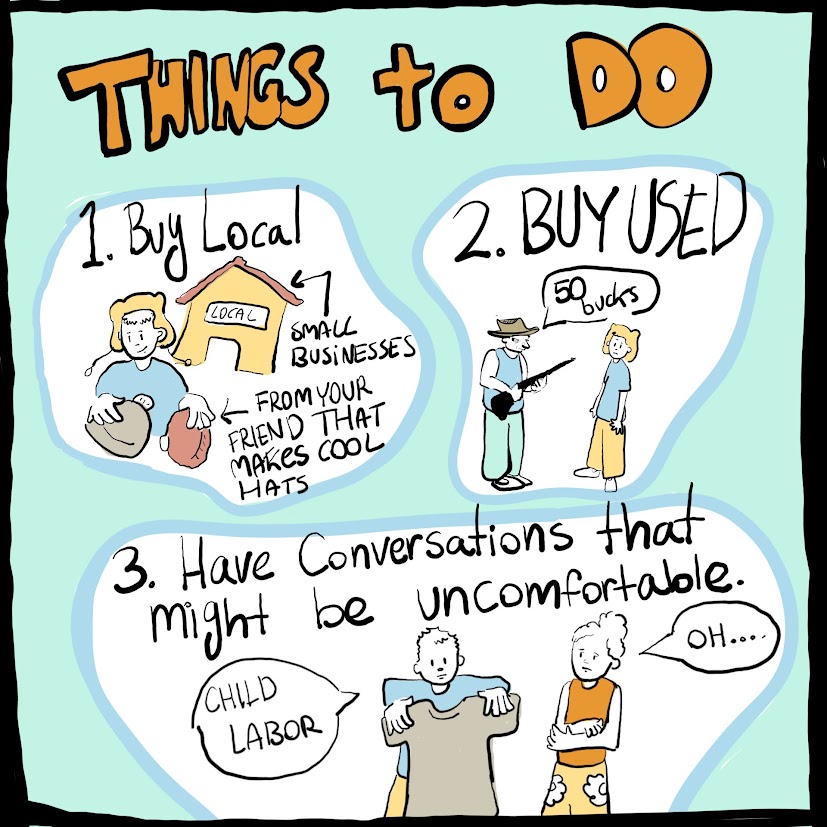 THINGS to DO
1. Buy Local
LOCAL
SMALL
BUSINESSES
FROM YOUR
FRIEND THAT
MAKES COOL
HATS
2. BUY USED
50
bucks
3. Have Conversations that
might be uncomfortable.
CHILD
LABOR
OH....